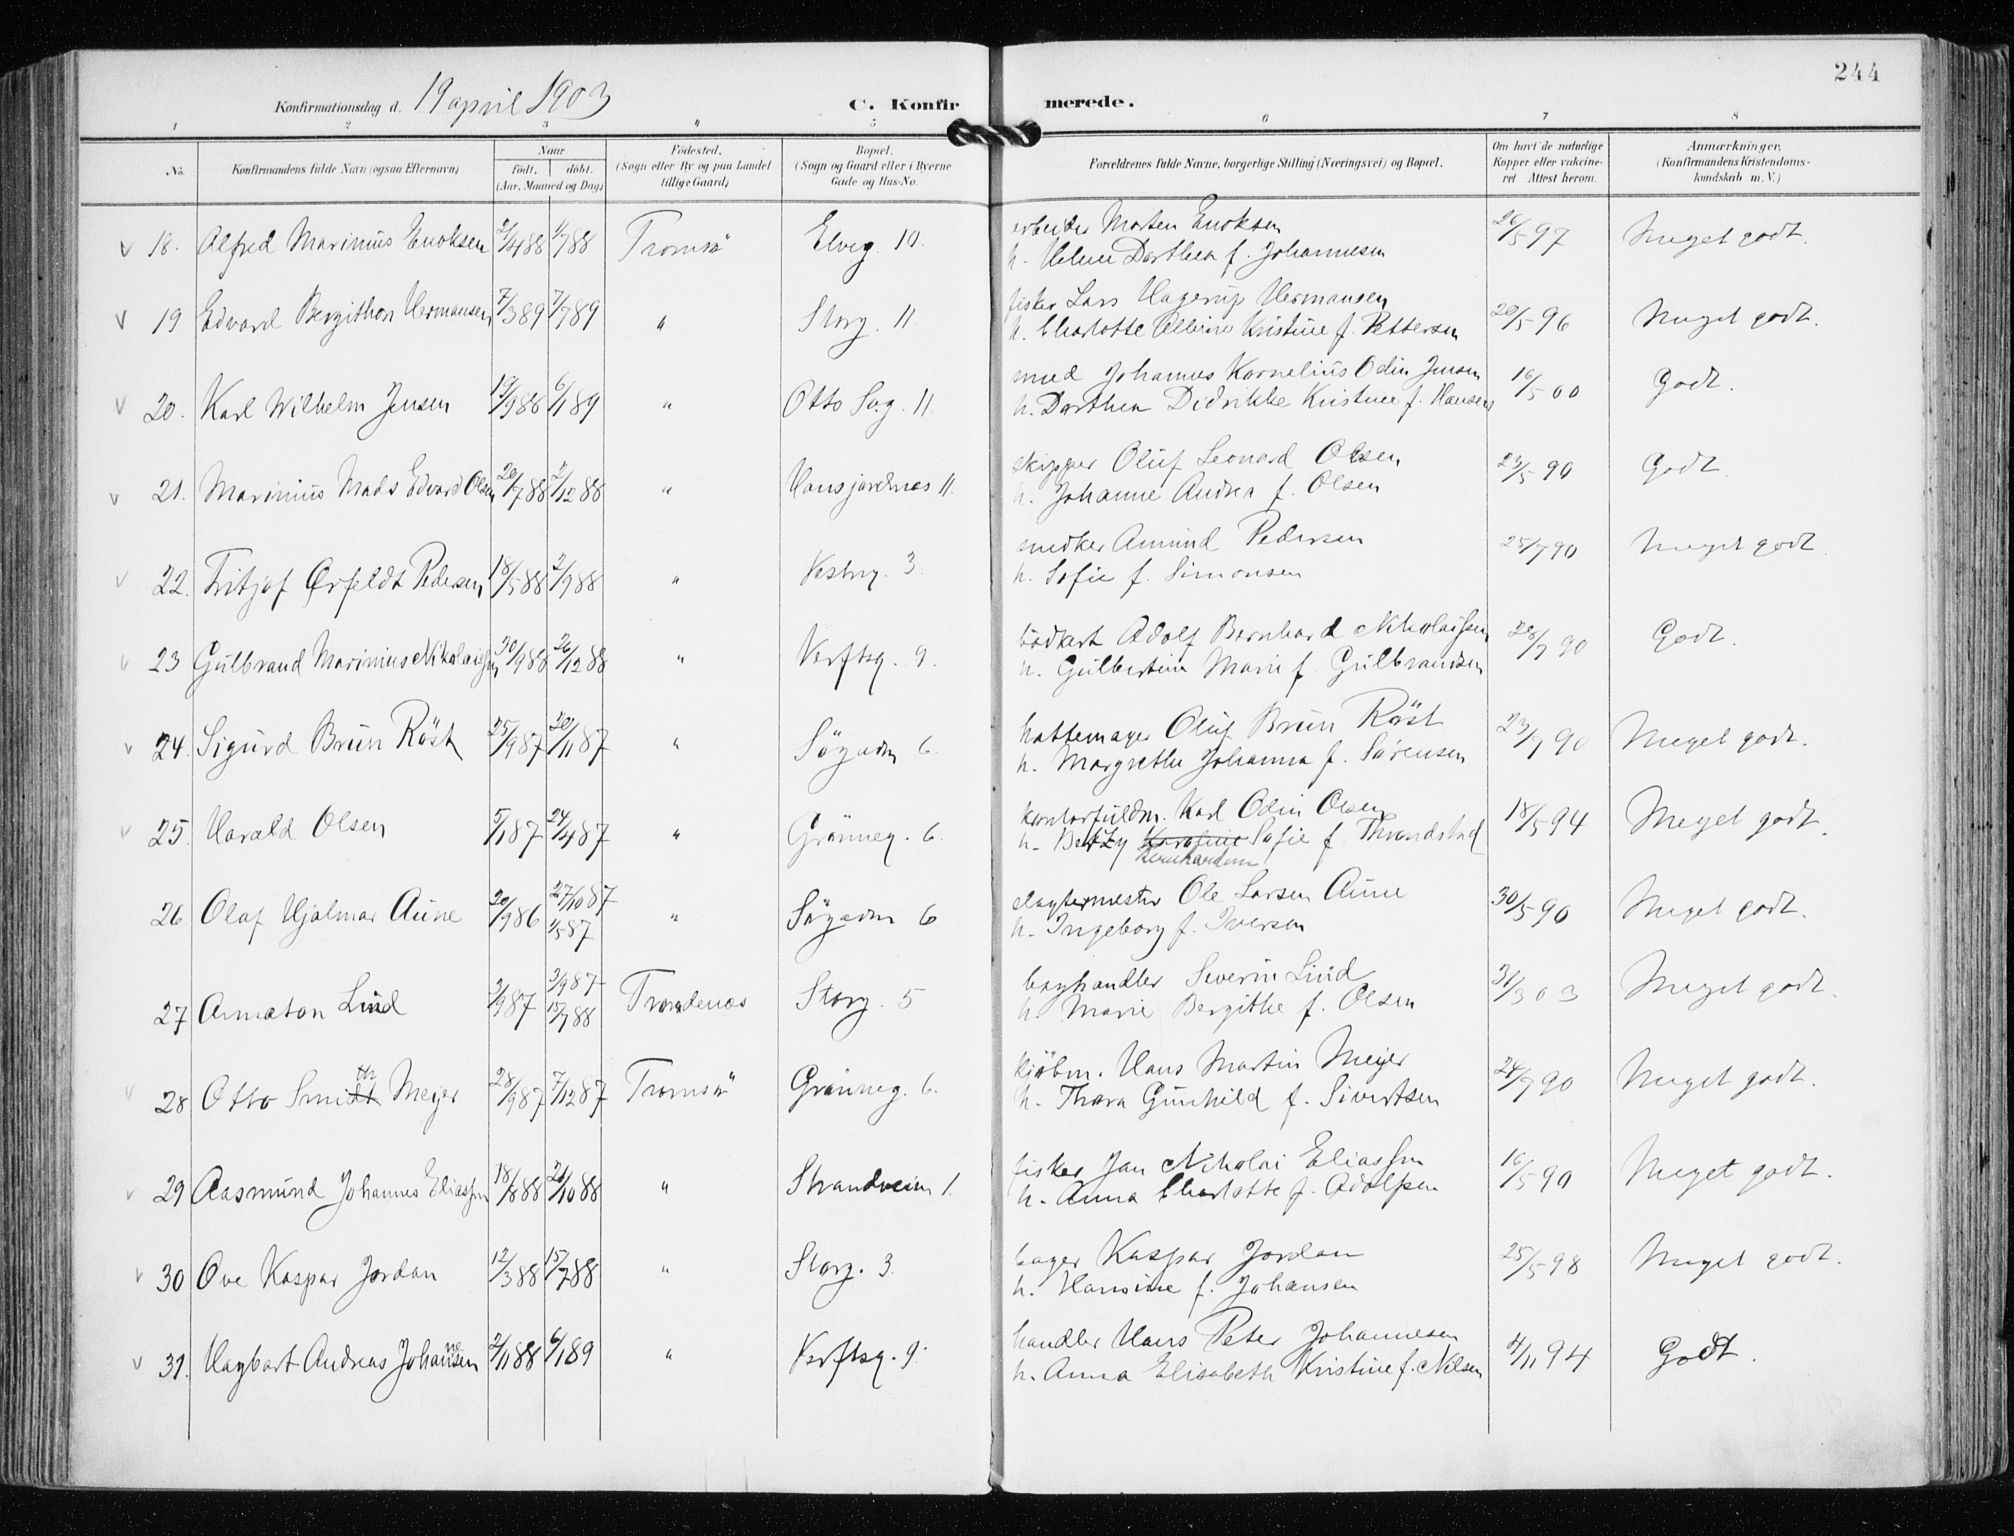 244
Konfirmationsdag d. 19 april 1903
C. Konfirmerede.
1 2 3 " 5 6 7 8
No. Konfirmandens fulde Navn (ogsaa Efternavn) Naar født, døbt. (Aar, Maaned og Dag) Fødested. (Sogn eller By og paa Landet tillige Gaard) Bopæl. (Sogn og Gaard eller i Byerne Gade og Hus-No. Forældrenes fulde Navne, borgerlige Stilling (Næringsvei) og Bopæl. Om havt de naturlige Kopper eller vakcineret Attest herom. Anmærkninger. (Konfirmandens Kristendomskundskab m. V.)
v 18. Alfred Marinius Enoksen 2/4 88 1/7 88 Tromsö Elveg. 10. arbeider Morten Enoksen 26/5 97 Meget godt.
h. Helene Dorthea f. Johannesen
v 19 Edvard Bergithon Hermansen 7/3 89 7/7 89 " Storg. 11. fisker Lars Hagerup Hermansen 20/5 96 Meget godt.
h. Charlotte Albine Kristine f. Pettersen
v 20. Karl Wilhelm Jensen 19/9 88 6/1 89 " Otto Sg. 11. smed Johannes Kornelius Odin Jensen 16/5 00 Godt.
h. Dorthea Didrikke Kristine f. Hansen
v 21. Marinius Mads Edvard Olsen 20/7 88 2/12 88 " Hansjordnes 11. skipper Oluf Leonard Olsen 23/5 90 Godt.
h. Johanne Andrea f. Olsen
v 22. Fritjof Ørfeldt Pedersen 18/5 88 2/9 88 " Vestreg. 3. snedker Amund Pedersen 25/7 90 Meget godt.
h. Sofie f. Simonsen
v 23 Gulbrand Marinius Nikolaissen 30/9 88 26/12 88 " Verftsg. 9. bödkart Adolf Bernhard Nikolaissen 28/7 90 Godt.
h. Gulbertine Marie f. Gulbrandsen
v 24. Sigurd Brun Röst 25/9 87 20/11 87 " Sögaden 6. hattemager Oluf Brun Röst 23/7 90 Meget godt.
h. Margrethe Johanna f. Sörensen
v 25. Harald Olsen 5/1 87 24/4 87 " Grönneg. 6. kontorfuldm. Karl Odin Olsen 18/5 94 Meget godt.
h. Betzy Karoline Sofie f. Throndstad
v 26. Olaf Hjalmar Aune 20/9 86 27/10 87 " Sögaden 6 slagtermester Ole Larsen Aune 30/5 90 Meget godt.
1/5 87 h. Ingeborg f. Iversen
27 Annaton Lind 3/9 87 3/9 87 Trondenæs Storg. 5 boghandler Severin Lind 31/3 03 Meget godt.
15/7 88 h. Marie Bergithe f. Olsen
th
v 28 Otto Smidt Meyer 28/9 87 7/12 87 Tromsö Grönneg. 6. kjöbm. Hans Martin Meyer 24/7 90 Meget godt.
h. Thora Gunhild f. Sivertsen
v 29 Aasmund Johannes Eliassen 18/8 88 21/10 88 " Strandveien 1. fisker Jan Nikolai Eliassen 16/5 90 Meget godt.
h. Anna Charlotte f. Adolfsen
v 30 Ove Kaspar Jordan 12/3 88 15/7 88 " Storg. 3. bager Kaspar Jordan 25/5 98 Meget godt.
h. Hansine f. Johansen
ne
v 31. Hagbart Andreas Johansen 2/11 88 6/1 89 " Verftsg. 9. handler Hans Peter Johannesen 4/11 94 Godt.
h. Anna Elisabeth Kristine f. Nilsen